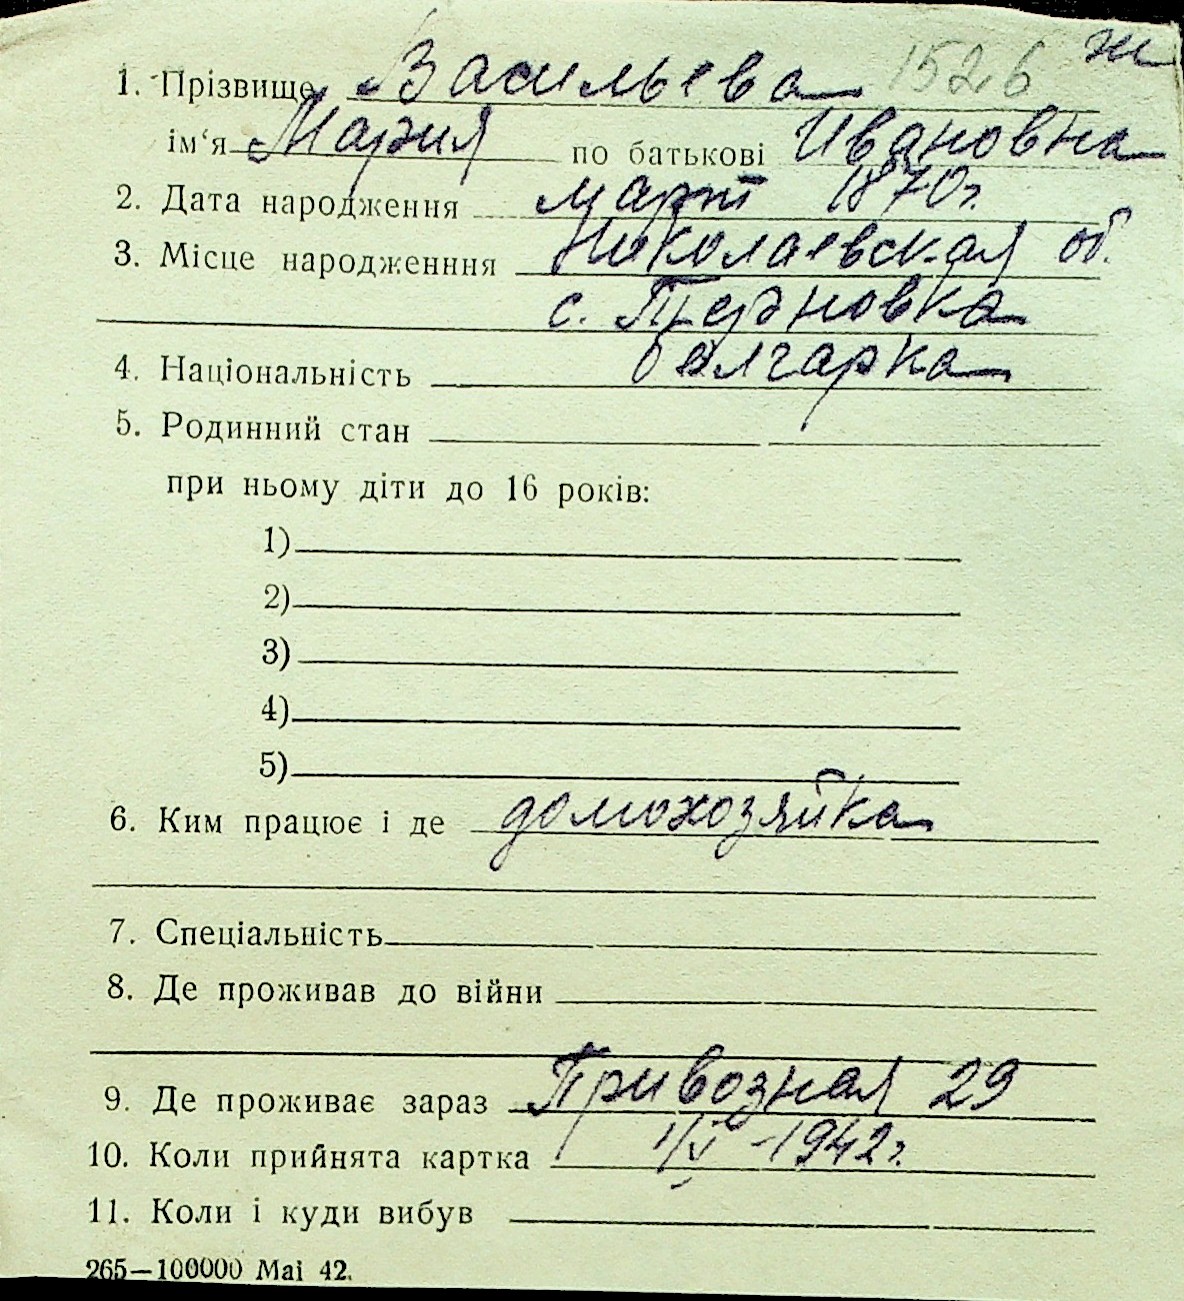 1. Прізвище Васильева 1526 ж
ім‘я Мария по батькові Ивановна
2. Дата народження март 1870 г.
3. Місце народженння Николаевская об.
с.
4. Національність болгарка
5. Родинний стан
при ньому діти до 16 років:
1)
2)
3)
4)
5)
6. Ким працює і де домохозяйка
7. Спеціальність
8. Де проживав до війни
9. Де проживає зараз Привозная 29
10. Коли прийнята картка 1/V - 1942 г.
11. Коли і куди вибув
265—100000 Маі 42.